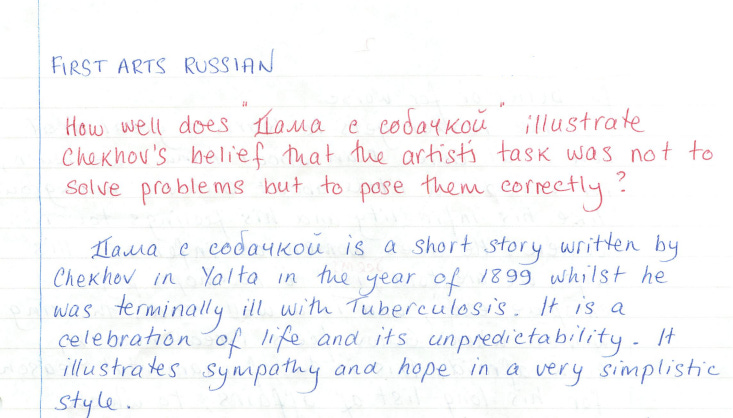 FIRST ARTS RUSSIAN
How well does "Дама с собачкой" illustrate
Chekhov's belief that the artist's task was not to
solve problems but to pose them correctly?
Дама с собачкой is a short story written by
Chekhov in Yalta in the year of 1899 whilst he
was terminally ill with Tuberculosis. It is a
celebration of life and its unpredictability. It
illustrates sympathy and hope in a very simplistic
style.